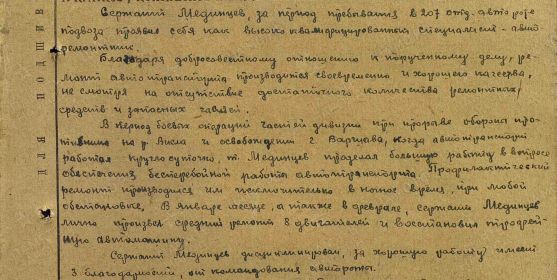 Сержант Мединцев, за период пребывания в 207 отд. авто роте
подвоза проявил себя как высоко квалифицированный специалист - авто
ремонтник.
Благодаря добросовестному отношению к порученному делу, ре-
монт автотранспорта производится своевременно и хорошего качества,
не смотря на отсутствие достаточного количества ремонтных
средств и запасных частей.
В период боевых операций частей дивизии при прорыве обороны про-
тивника на р. Висла и освобождении г. Варшава, когда автотранспорт
работал круглосуточно, т. Мединцев проделал большую работу в вопросе
обеспечения бесперебойной работы автотранспорта. Профилактический
ремонт производился им исключительно в ночное время, при любой
обстановке. В январе месяце, а также в феврале, сержант Мединцев
лично произвел средний ремонт 8 двигателей и восстановил трофей-
ную автомашину.
Сержант Мединцев дисциплинирован, за хорошую работу имеет
3 благодарности, от командования автороты.
ДЛЯ ПОДШИВ